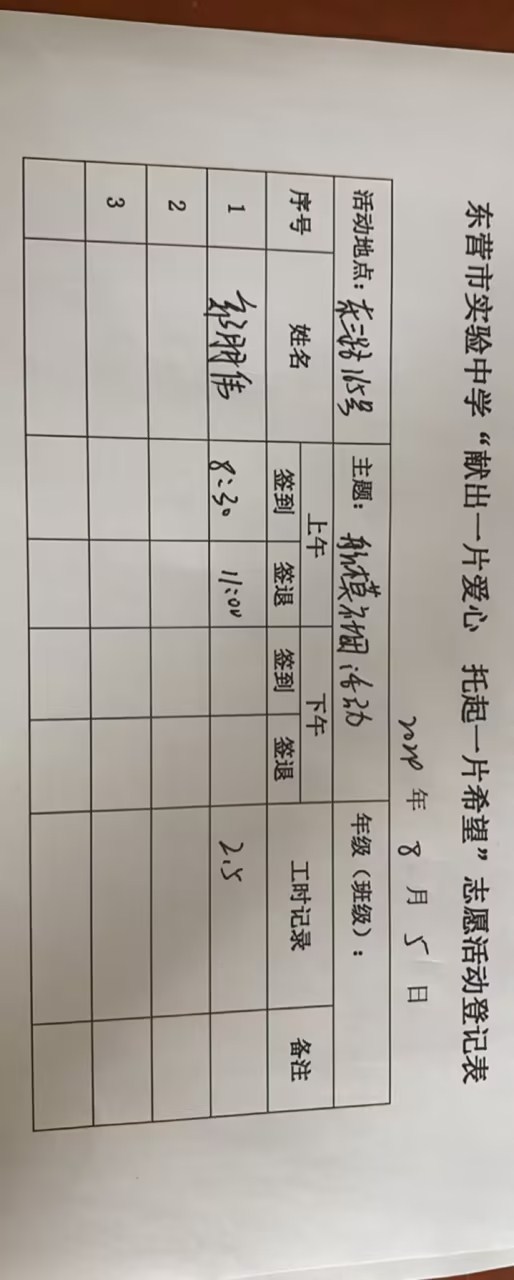 东营市实验中学“献出一片爱心 托起一片希望”志愿活动登记表
年 8 月 5 日
活动地点：东三路165号 主题：航模 活动 年级（班级）：
序号 姓名 上午 下午 工时记录 备注
签到 签退 签到 签退
1 郭朋伟 8:30 11:00 2.5
2
3